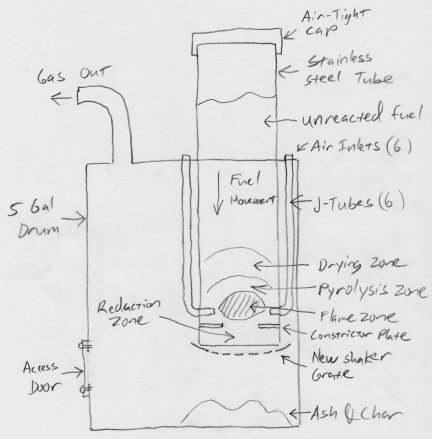 Air-Tight
cap
Gas Out
Stainless
steel Tube
unreacted fuel
Air Inlets (6)
Fuel
Movement
J-Tubes (6)
5 Gal
Drum
Drying Zone
Pyrolysis Zone
Reduction
Zone
Flame Zone
Constrictor Plate
New shaker
Grate
Access
Door
Ash & Char